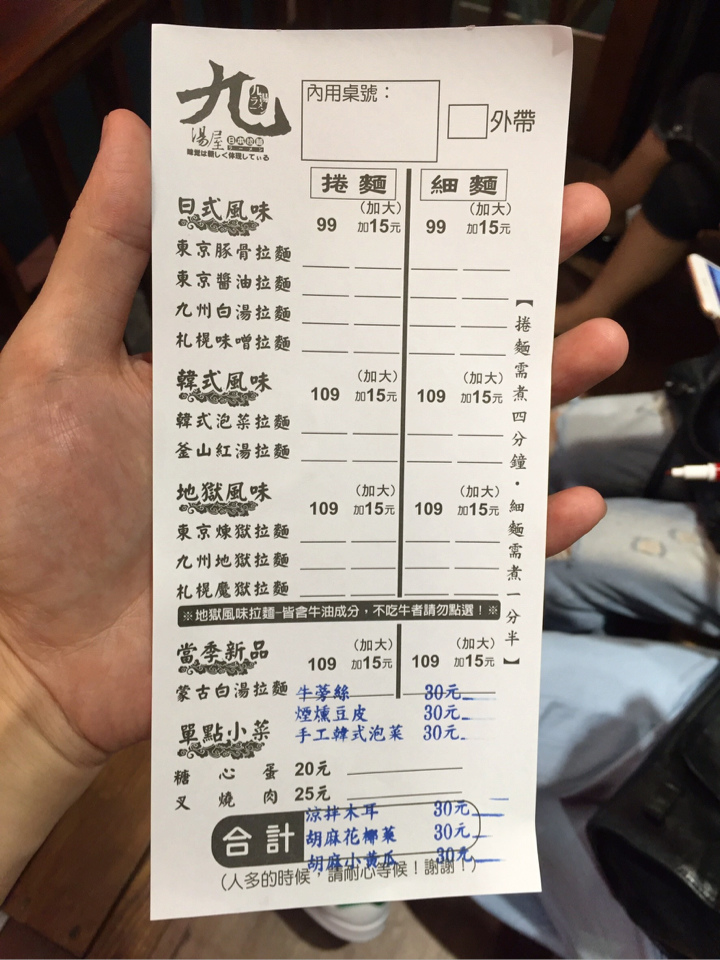 九
九湯ラーメン
湯屋 日本拉麺
ラーメン
味覚は新しく体現している
內用桌號：
外帶
捲麵 細麵
日式風味 99 (加大)加15元 99 (加大)加15元
東京豚骨拉麵
東京醬油拉麵
九州白湯拉麵
札幌味噌拉麵
韓式風味 109 (加大)加15元 109 (加大)加15元
韓式泡菜拉麵
釜山紅湯拉麵
地獄風味 109 (加大)加15元 109 (加大)加15元
東京煉獄拉麵
九州地獄拉麵
札幌魔獄拉麵
【捲麵需煮四分鐘・細麵需煮一分半】
※地獄風味拉麵-皆含牛油成分，不吃牛者請勿點選！※
當季新品 109 (加大)加15元 109 (加大)加15元
蒙古白湯拉麵
牛蒡絲 30元
煙燻豆皮 30元
手工韓式泡菜 30元
單點小菜
糖心蛋 20元
叉燒肉 25元
涼拌木耳 30元
合計
胡麻花椰菜 30元
胡麻小黃瓜 30元
(人多的時候，請耐心等候！謝謝！)